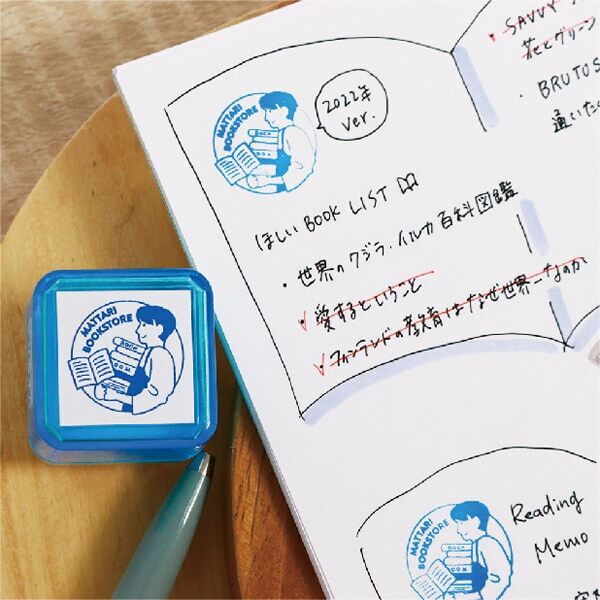 MATTARI
BOOKSTORE
BOOK
2022年
ver.
ほしいBOOK LIST
・世界のクジラ・イルカ百科図鑑
✓愛するということ
✓フィンランドの教育はなぜ世界一なのか
・SAVVY
花とグリーン
・BRUTUS
通いたい
MATTARI
BOOKSTORE
BOOK
MATTARI
BOOKSTORE
BOOK
Reading
Memo